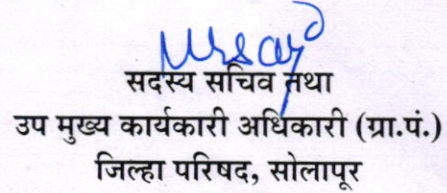 सदस्य सचिव तथा
उप मुख्य कार्यकारी अधिकारी (ग्रा.पं.)
जिल्हा परिषद, सोलापूर